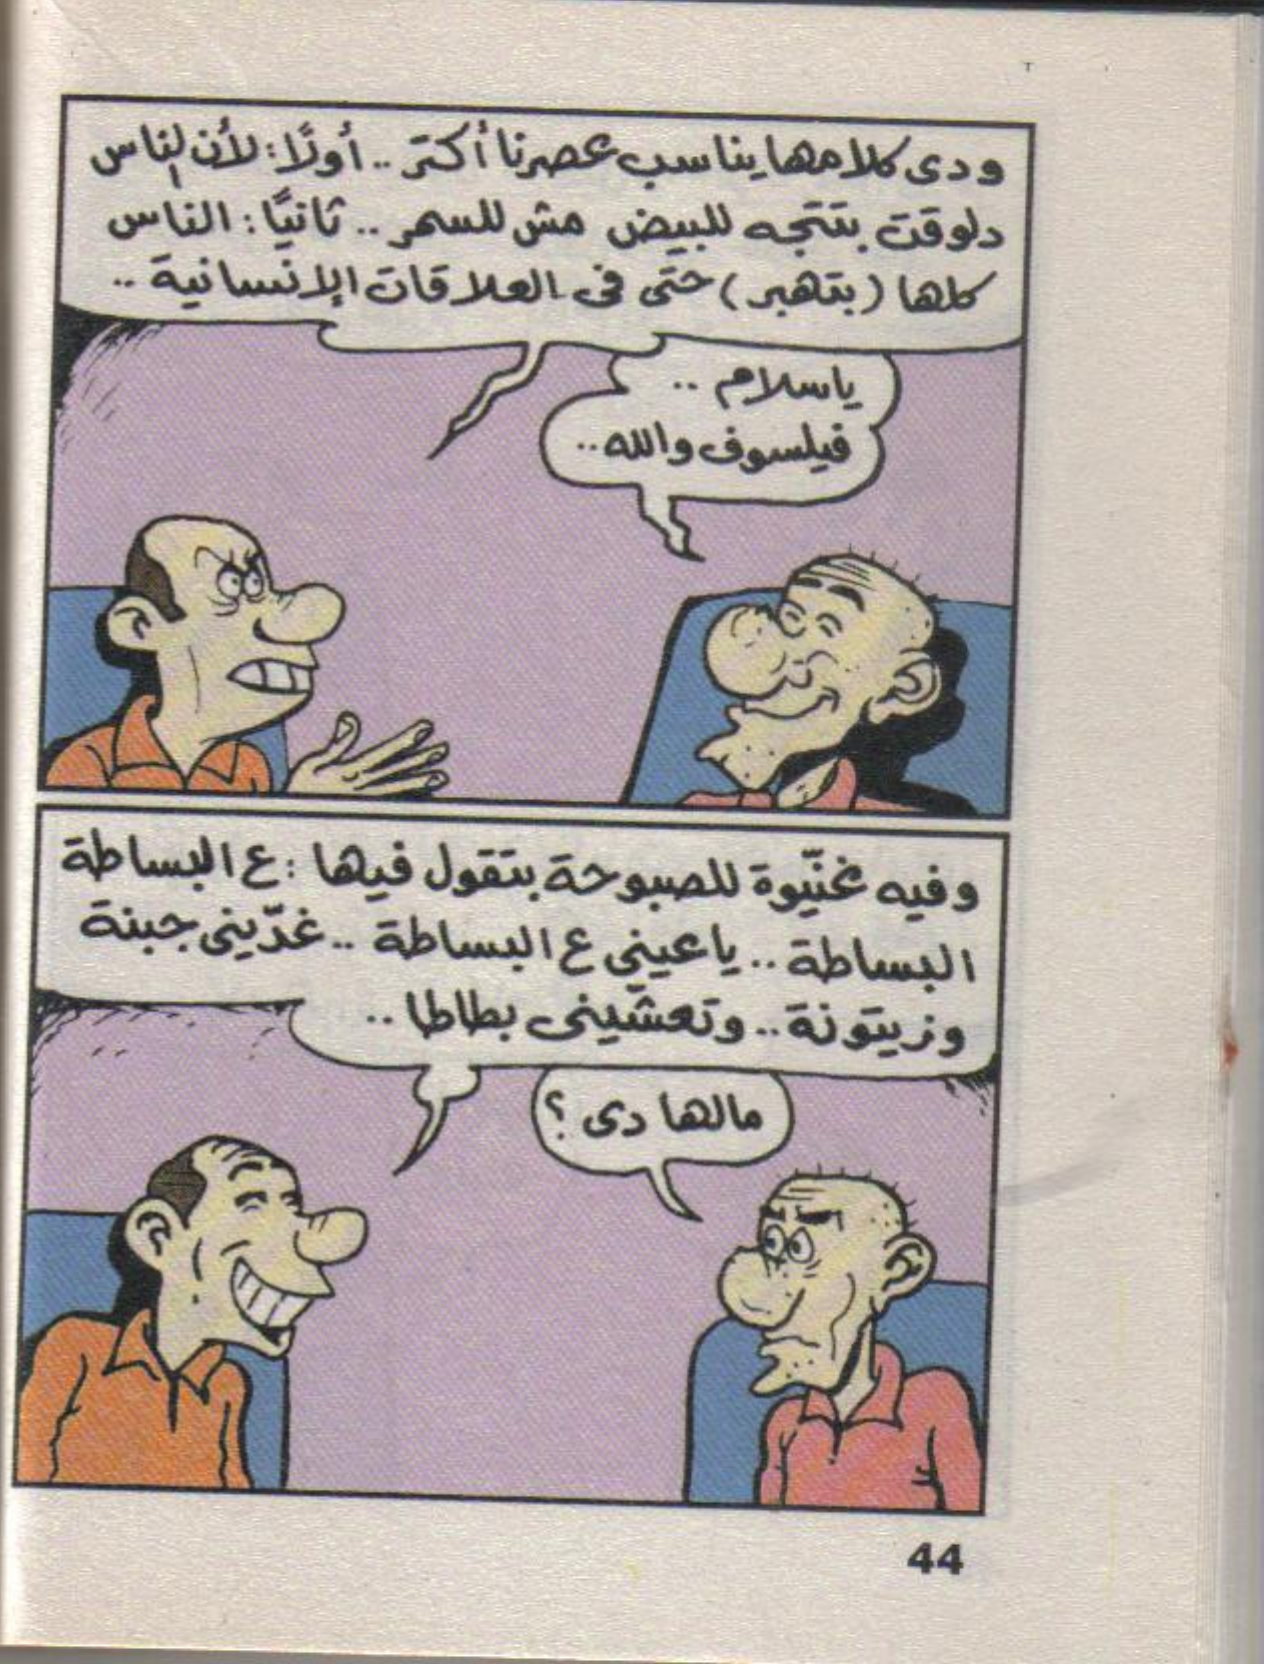 ودى كلامها يناسب عصرنا أكتر .. أولًا: لأن الناس
دلوقت بتتجه للبيض مش للسمر .. ثانيًا: الناس
كلها (بتهبر) حتى فى العلاقات الإنسانية ..
ياسلام ..
فيلسوف والله ..
وفيه غنّيوة للصبوحة بتقول فيها : ع البساطة
البساطة .. ياعينى ع البساطة .. غدّينى جبنة
وزيتونة .. وتعشّينى بطاطا ..
مالها دى ؟
44